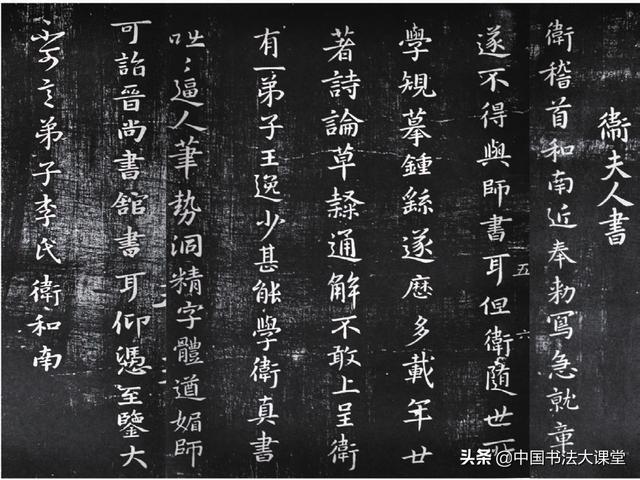 衛夫人書
衛稽首和南近奉勅寫急就章
遂不得與師書耳但衛隨世所
五
六
學規摹鍾繇遂歷多載年廿
著詩論草隸通解不敢上呈衛
有一弟子王逸少甚能學衛真書
咄〻逼人筆勢洞精字體遒媚師
可詣晉尚書館書耳仰憑至鑒大
不可言弟子李氏衛和南
头条 @中国书法大课堂